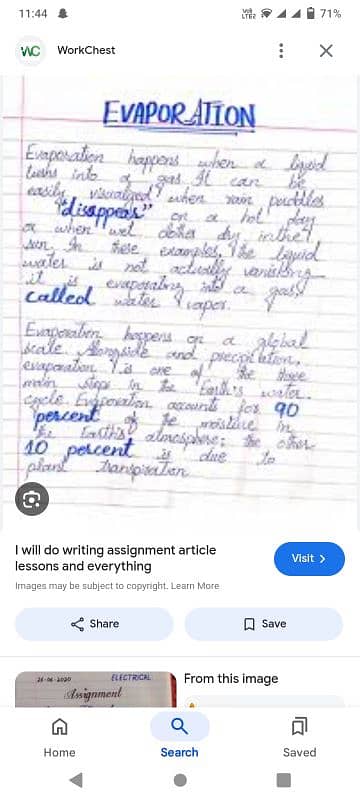 11:44
Vo LTE2 71%
WC WorkChest
EVAPORATION
Evaporation happens when a liquid
turns into a gas. It can be
easily visualized when rain puddles
"disappear" on a hot day
or when wet clothes dry in the
sun. In these examples, the liquid
water is not actually vanishing
it is evaporating into a gas,
called water vapor.
Evaporation happens on a global
scale. Alongside and precipitation,
evaporation is one of the three
main steps in the Earth's water
cycle. Evaporation accounts for 90
percent of the moisture in
the Earth's atmosphere; the other
10 percent is due to
plant transpiration
I will do writing assignment article
lessons and everything
Visit >
Images may be subject to copyright. Learn More
Share
Save
26-06-2020 ELECTRICAL
Assignment
From this image
Home
Search
Saved